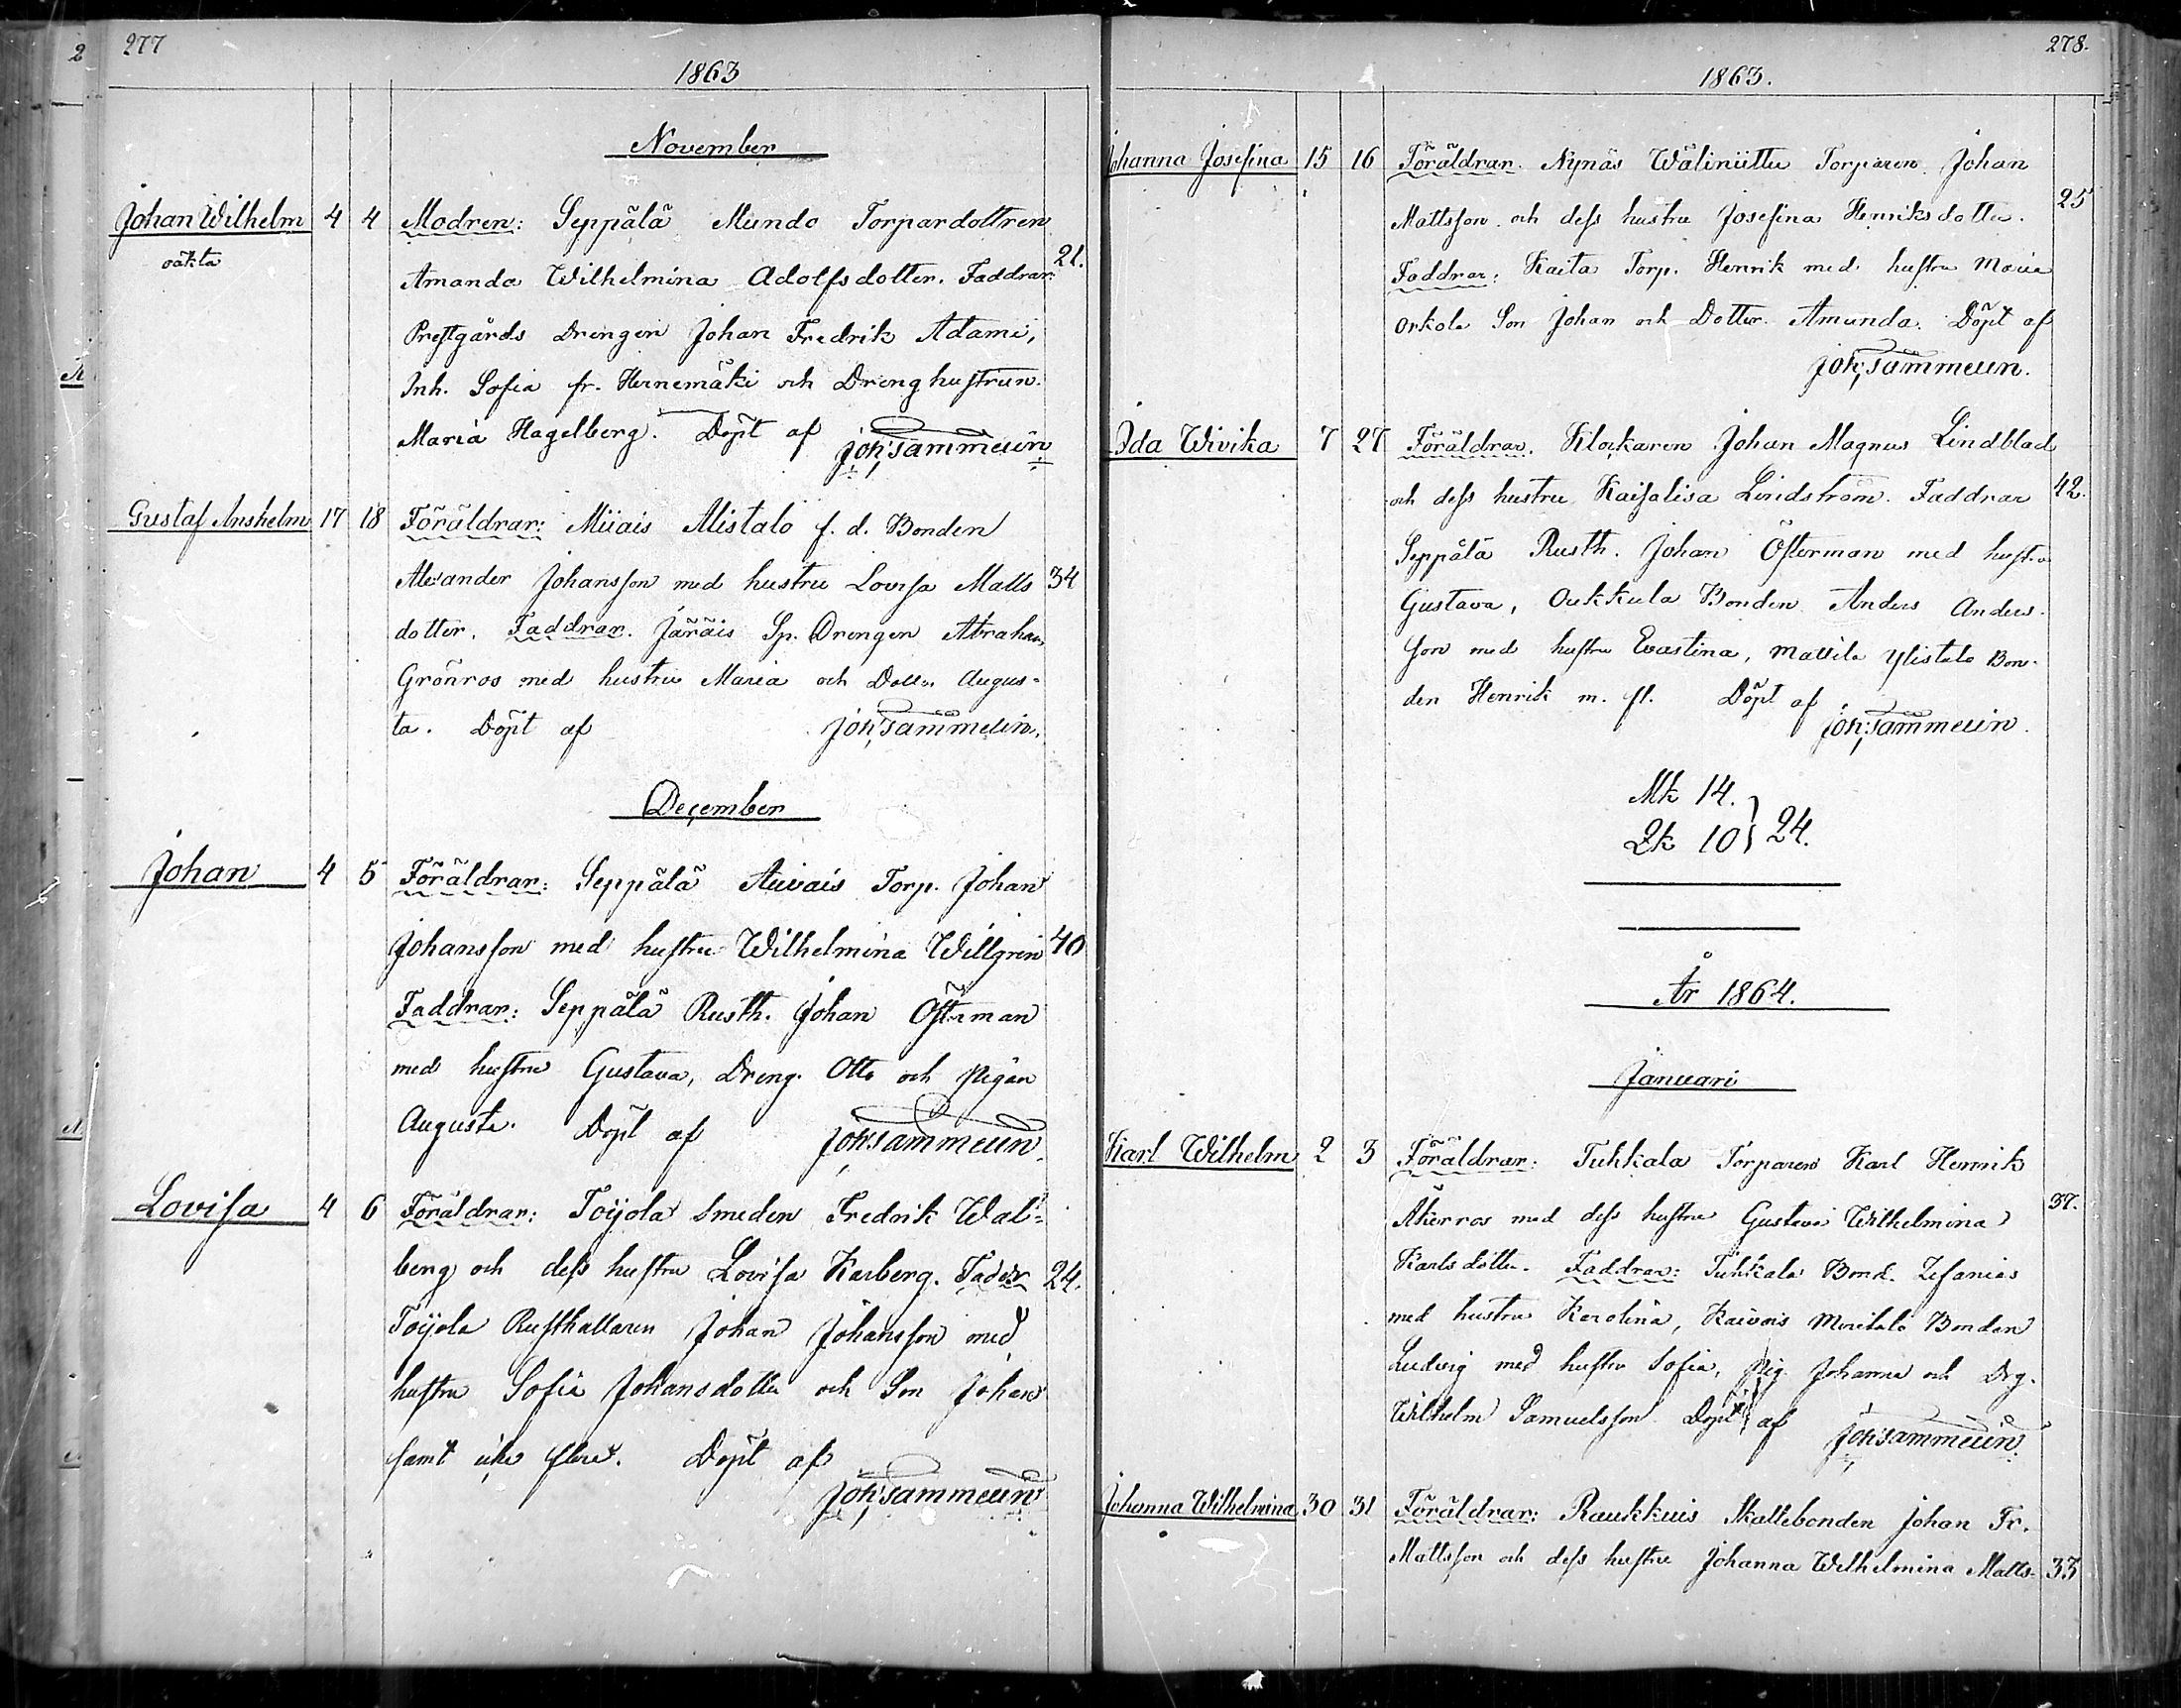 277
1863
November
Johan Wilhelm 4 4 Modren: Seppälä Mundo Torpardottren
oäkta
Amanda Wilhelmina Adolfsdotter. Faddrar: 21.
Prestgårds Drengen Johan Fredrik Adami,
Inh. Sofia fr. Hernemäki och Drenghustrun
Maria Hagelberg. Döpt af Joh: Tammelin
Gustaf Anshelm 17 18 Föräldrar: Alistalo f. d. Bonden
Alexander Johansson med hustru Lovisa Matts 34
dotter. Faddrar. Järäis Sp. Drengen Abraham
Grönros med hustru Maria och Dotter Augus-
ta. Döpt af Joh: Tammelin.
December
Johan 4 5 Föräldrar: Seppälä Torp. Johan
Johansson med hustru Wilhelmina Willgren 40
Faddrar: Seppälä Rusth. Johan Österman
med hustru Gustava, Dreng. Otto och Pigan
Augusta. Döpt af Joh: Tammelin.
Lovisa 4 6 Föräldrar: Toijola Smeden Fredrik Wal-
berg och dess hustru Lovisa Karberg. Faddr 24.
Toijola Rusthållaren Johan Johansson med
hustru Sofia Johansdotter och Son Johan
samt flere. Döpt af
Joh: Tammelin
278.
1863.
Johanna Josefina 15 16 Föräldrar. Nynäs Wäliniittu Torparen Johan
Mattsson och dess hustru Josefina Henriksdotter. 25
Faddrar: Kaita Torp. Henrik med hustru Maria
Orkola Son Johan och Dotter Amanda. Döpt af
Joh: Tammelin.
Ida Wivika 7 27 Föräldrar. Klockaren Johan Magnus Lindblad
och dess hustru Kaisalisa Lindström. Faddrar 42.
Seppälä Rusth. Johan Österman med hustru
Gustava, Oukkula Bonden Anders Anders-
son med hustru Evastina, Mattila Ylistalo Bon-
den Henrik m. fl. Döpt af
Joh: Tammelin.
Mk 14.
Qk 10 } 24.
År 1864.
Januari
Karl Wilhelm 2 3 Föräldrar: Tuhkala Torparen Karl Henrik
Åkerros med dess hustru Gustava Wilhelmina 37.
Karlsdotter. Faddrar: Tuhkala Bond. Zefanias
med hustru Karolina, Bonden
Ludvig med hustru Sofia, Pig. Johanna och Drg.
Wilhelm Samuelsson. Döpt af Joh: Tammelin.
Johanna Wilhelmina 30 31 Föräldrar: Raukkuis Skattebonden Johan Fr.
Mattsson och dess hustru Johanna Wilhelmina Matts- 33